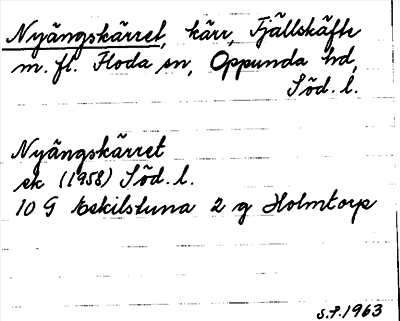 Nyängskärret, kärr, Fjällskäfte
m. fl. Floda sn, Oppunda hd,
Söd. l.
Nyängskärret
ek (1958) Söd. l.
10 G Eskilstuna 2 g Holmtorp
S.F. 1963